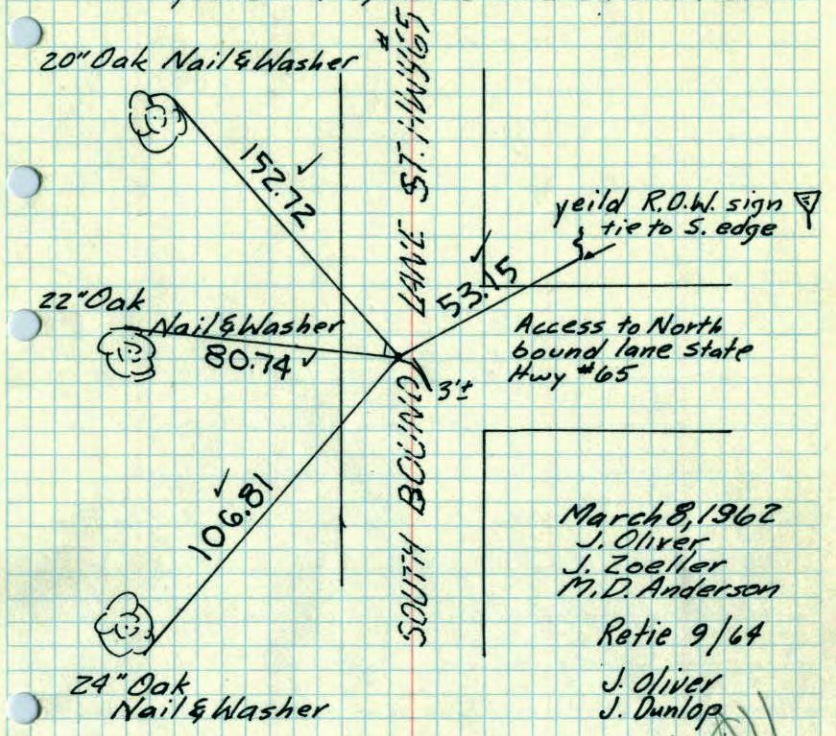 20" Oak Nail & Washer
SOUTH BOUND LANE ST. HWY #65
152.72 ✓
yeild R.O.W. sign
tie to S. edge
53.15 ✓
22" Oak
Nail & Washer
80.74 ✓
Access to North
bound lane state
Hwy #65
3'±
106.81 ✓
March 8, 1962
J. Oliver
J. Zoeller
M.D. Anderson
Retie 9/64
J. Oliver
J. Dunlop
24" Oak
Nail & Washer